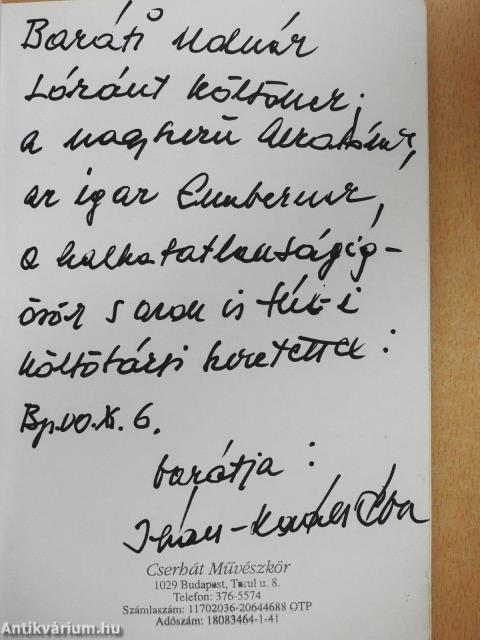 Baráti Molnár
Lóránt költőnek;
a nagyszerű Alkotónak,
az igaz Embernek,
a halhatatlanságig-
örök s azon is túl-i
költőtársi szeretettel:
Bp. 00. X. 6.
barátja:
Ihász-Kovács Éva
Cserhát Művészkör
1029 Budapest, Turul u. 8.
Telefon: 376-5574
Számlaszám: 11702036-20644688 OTP
Adószám: 18083464-1-41
Antikvárium.hu